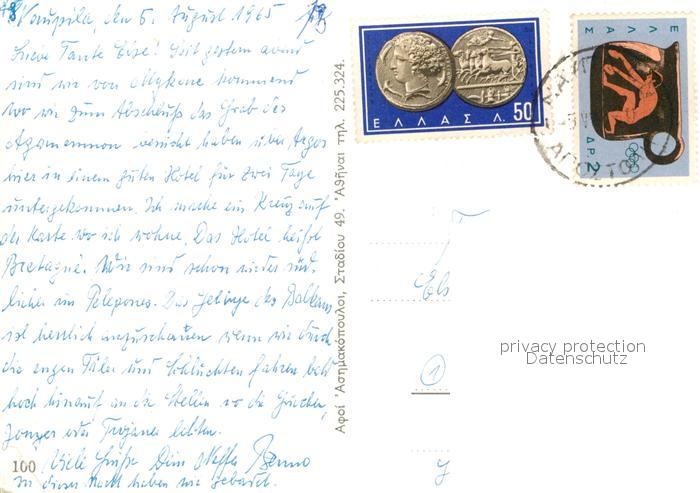 Naupilia, den 5. August 1965
Liebe Tante Else! Seit gestern abend
sind wir von Mykene kommend
wo wir zum Abschluß das Grab des
Agamemnon besucht haben über Argos
hier in einem guten Hotel für zwei Tage
untergekommen. Ich mache ein Kreuz auf
der Karte wo ich wohne. Das Hotel heißt
Bretagne. Wir sind schon wieder süd-
licher im Pelepones. Das Gebirge des Balkans
ist herrlich anzuschauen wenn wir durch
die engen Täler und Schluchten fahren bald
hoch hinauf an die Stellen wo die Griechen,
oder Trojaner lebten.
Viele Grüße Dein Neffe Benno
In dieser Nacht haben wir gebadet.
100
Αφοί 'Ασημακόπουλοι, Σταδίου 49. 'Αθήναι τηλ. 225.324.
ΕΛΛΑΣ Λ. 50
ΕΛΛΑΣ
ΔΡ 2
Els
1
privacy protection
Datenschutz